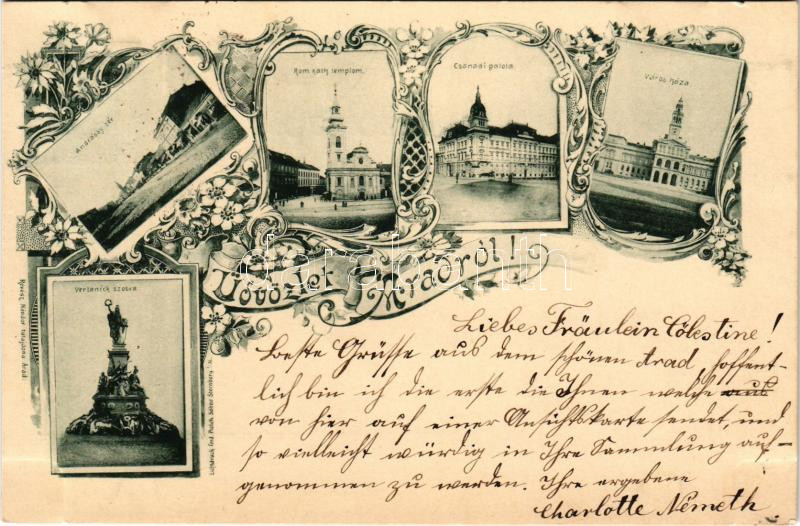 Andrássy tér
Rom. kath. templom.
Csanádi palota
Város háza.
Üdvözlet Aradról!
Vértanúk szobra
Liebes Fräulein Cölestine!
beste Grüsse aus dem schönen Arad, hoffent-
lich bin ich die erste die Ihnen welche aus
von hier auf einer Ansichtskarte sendet, und
so vielleicht würdig in Ihre Sammlung auf-
genommen zu werden. Ihre ergebene
Charlotte Németh.